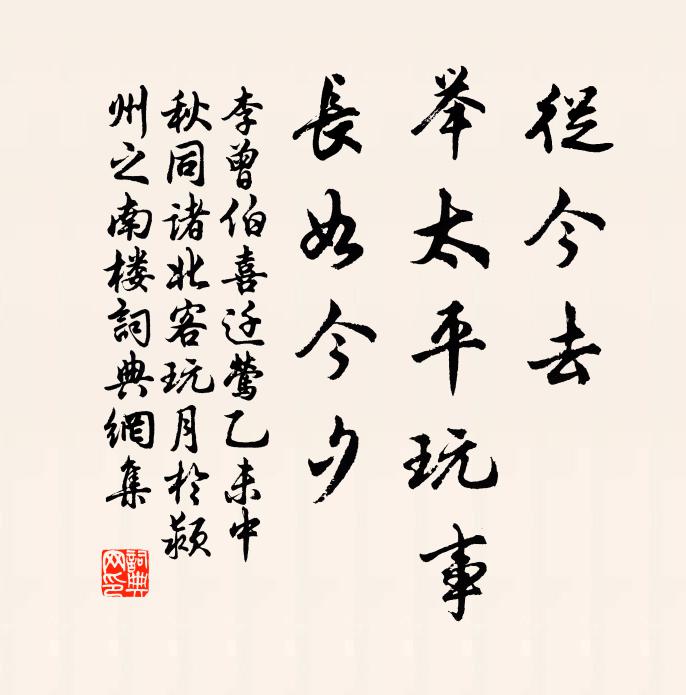 從今去
举太平玩事
長如今夕
李曾伯喜迁鶯乙未中
秋同诸北客玩月於蘄
州之南楼詞典網集
詞典网印